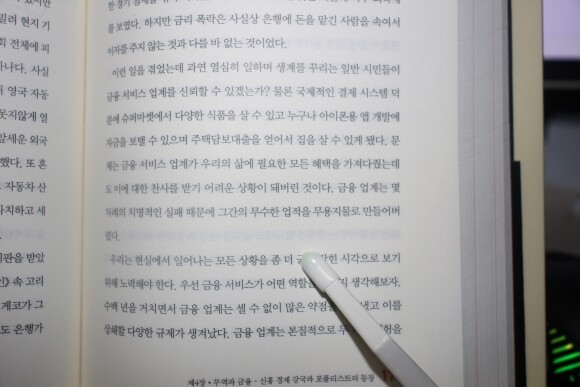 있지만
밀려 현지 기
회 전체에 피
나다. 사실
서 영국 자동
못지않게 열
앞세운 외국
했다. 또 흔
자동차 산
사치하고 세
비판을 받았
속 고리
게코가 그
도 은행가
를 보였다. 하지만 금리 폭락은 사실상 은행에 돈을 맡긴 사람을 속여서
이자를 주지 않는 것과 다를 바 없는 것이었다.
이런 일을 겪었는데 과연 열심히 일하며 생계를 꾸리는 일반 시민들이
금융 서비스 업계를 신뢰할 수 있겠는가? 물론 국제적인 결제 시스템 덕
분에 슈퍼마켓에서 다양한 식품을 살 수 있고 누구나 아이폰용 앱 개발에
자금을 보탤 수 있으며 주택담보대출을 얻어서 집을 살 수 있게 됐다. 문
제는 금융 서비스 업계가 우리의 삶에 필요한 모든 혜택을 가져다줬는데
도 이에 대한 찬사를 받기 어려운 상황이 돼버린 것이다. 금융 업계는 몇
차례의 치명적인 실패 때문에 그간의 무수한 업적을 무용지물로 만들어버
렸다.
우리는 현실에서 일어나는 모든 상황을 좀 더 시각으로 보기
위해 노력해야 한다. 우선 금융 서비스가 어떤 역할을 생각해보자.
수백 년을 거치면서 금융 업계는 셀 수 없이 많은 약점을 이를
상쇄할 다양한 규제가 생겨났다. 금융 업계는 본질적으로
제4장 • 무역과 금융 - 신흥 경제 강국과 포퓰리스트의 등장